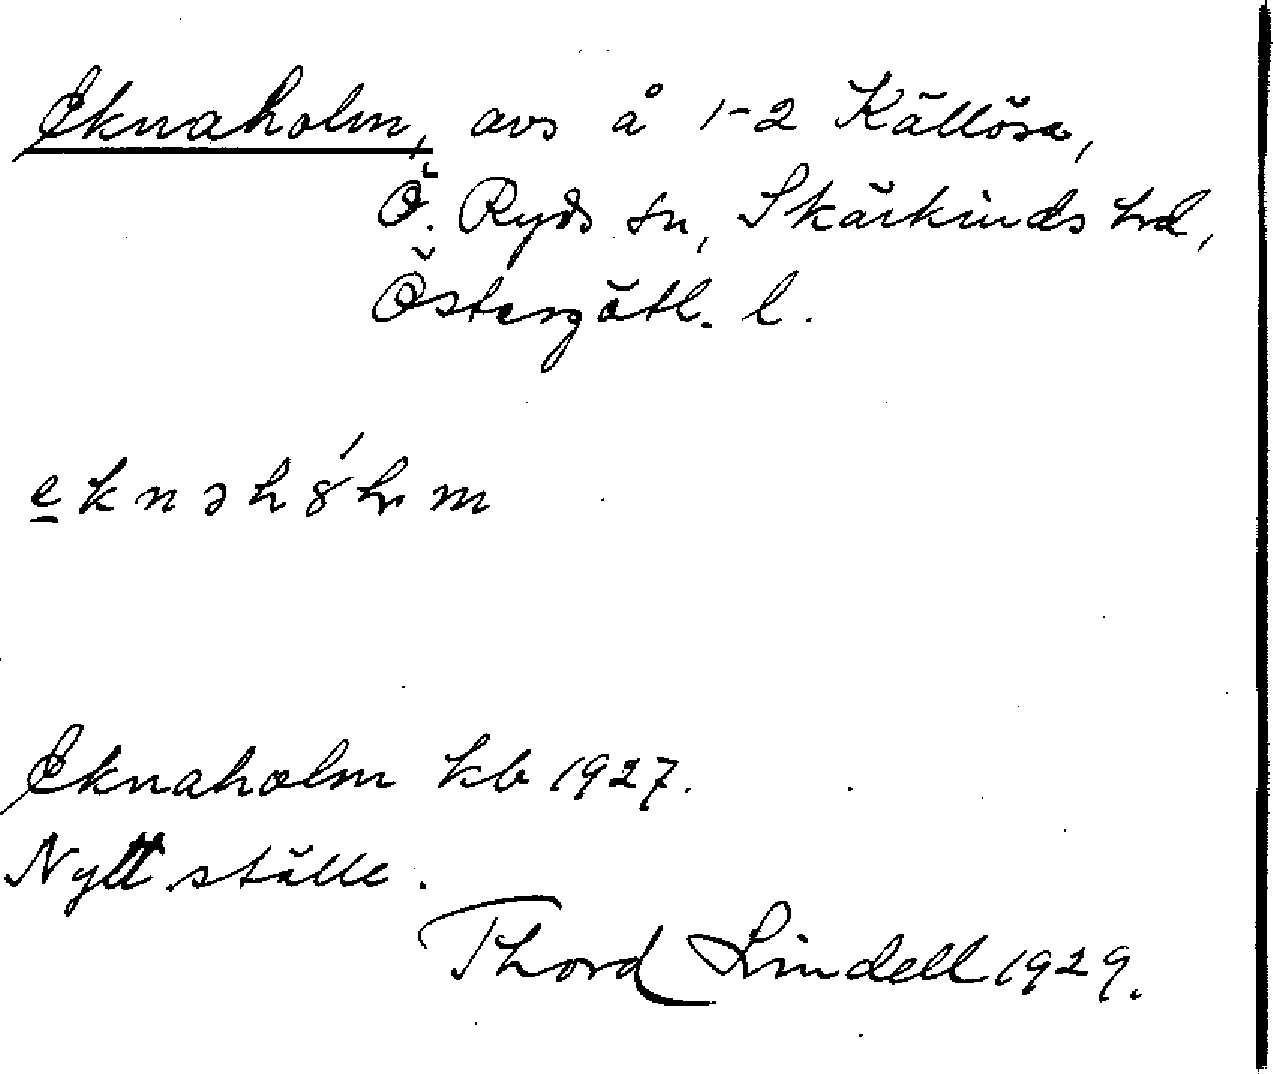 Eknaholm, avs å 1-2 Källösa,
Ö. Ryds sn, Skärkinds hrd,
Östergötl. l.
Eknaholm kb 1927.
Nytt ställe.
Thord Lindell 1929.